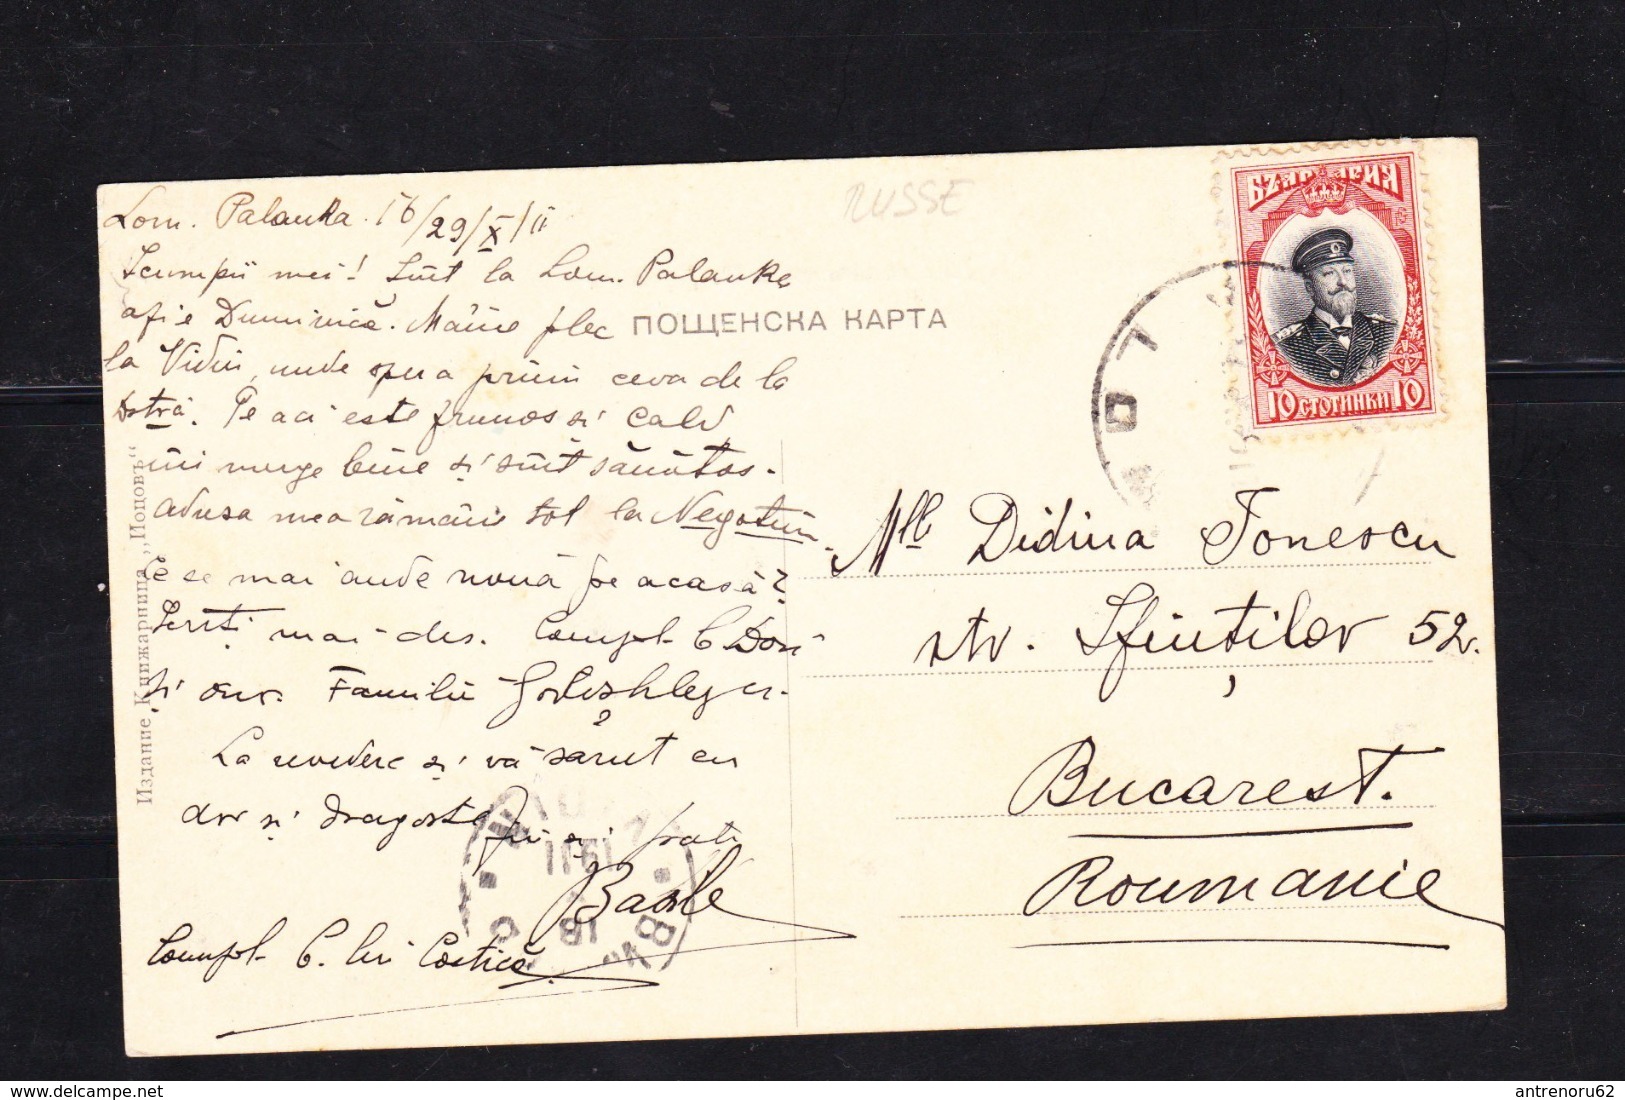 Lom. Palanka 16/29/X/11
Scumpii mei! Sînt la Lom. Palanka
afi e Duminică. Mâine plec
la Vidin, unde opera prim ceva de la
D-tră. Pe aci este frumos si cald
îmi merge bine si sînt sănătos.
adresa mea rămâne tot la Negotin.
Ce se mai aude nouă pe acasă?
Scriți mai des. Compl. C. Dori
și onr. Familii
La revedere si vă sărut cu
dor si dragoste fiu si frate
Basile
Compl. C. lui Costică
ПОЩЕНСКА КАРТА
Издание Книжарница „Поповъ“
RUSSE
БЪЛГАРИЯ
10 СТОТИНКИ 10
ЛОМ
1911
18
Mlle Didina Ionescu
str. Sfinților 52.
Bucarest.
Roumanie
antrenoru62